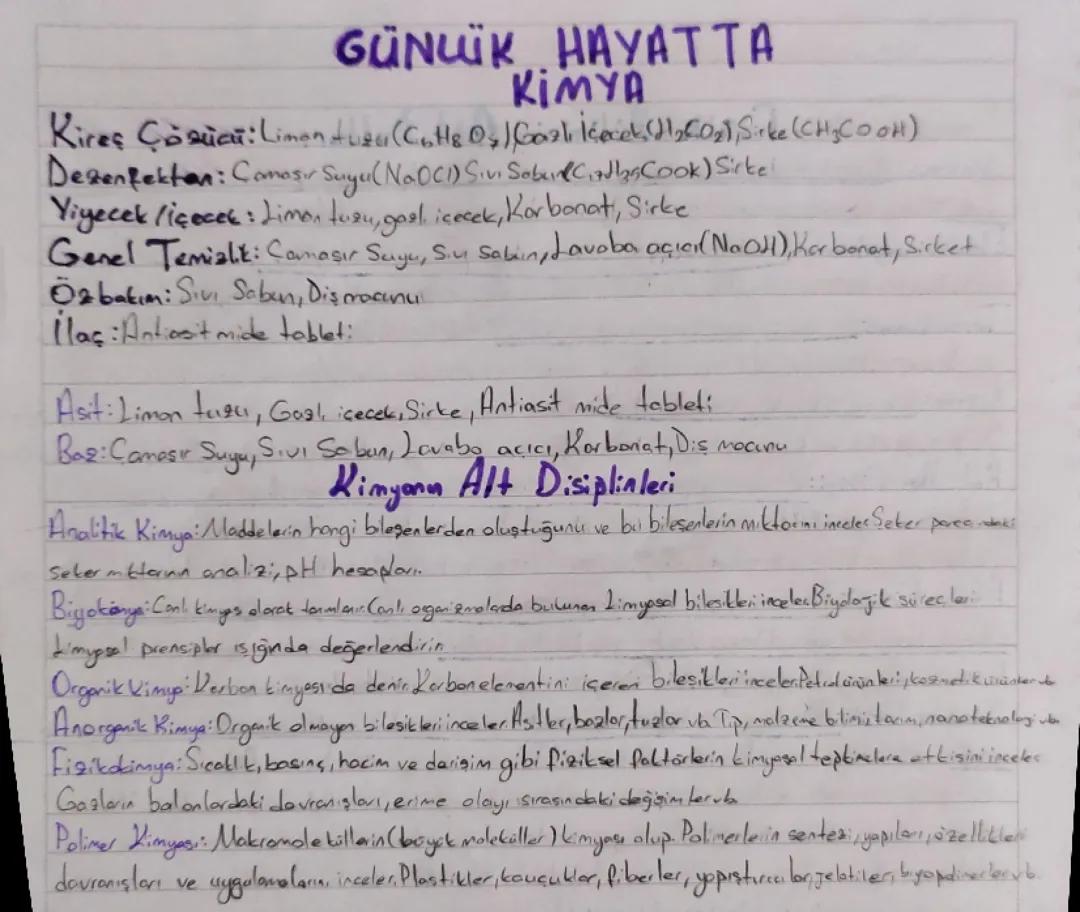 GÜNLÜK HAYATTA
KİMYA
Kireç Çözücü: Limon tuzu (C6H8O7) Gazlı İçecek (H2CO2), Sirke (CH3COOH)
Dezenfektan: Çamaşır Suyu (NaOCl) Sıvı Sabun (C17H35COOK) Sirke
Yiyecek/içecek: Limon tuzu, gazlı içecek, Karbonat, Sirke
Genel Temizlik: Çamaşır Suyu, Sıvı Sabun, Lavabo açıcı (NaOH), Karbonat, Sirket
Özbakım: Sıvı Sabun, Diş macunu
İlaç: Antiasit mide tableti
Asit: Limon tuzu, Gazlı içecek, Sirke, Antiasit mide tableti
Baz: Çamaşır Suyu, Sıvı Sabun, Lavabo açıcı, Karbonat, Diş macunu
Kimyanın Alt Disiplinleri
Analitik Kimya: Maddelerin hangi bileşenlerden oluştuğunu ve bu bileşenlerin miktarını inceler Şeker
şeker miktarının analizi, pH hesapları.
Biyokimya: Canlı kimyası olarak tanımlanır. Canlı organizmalarda bulunan kimyasal bileşikleri inceler. Biyolojik süreçleri
kimyasal prensipler ışığında değerlendirin
Organik Kimya: Karbon kimyası da denir. Karbon elementini içeren bileşikleri inceler. Petrol ürünleri, kozmetik ürünler vb
Anorganik Kimya: Organik olmayan bileşikleri inceler. Asitler, bazlar, tuzlar vb. Tıp, malzeme bilimi tarım, nanoteknoloji vb.
Fizikokimya: Sıcaklık, basınç, hacim ve derişim gibi fiziksel faktörlerin kimyasal tepkimelere etkisini inceler
Gazların balonlardaki davranışları, erime olayı sırasındaki değişimler vb
Polimer Kimyası: Makromoleküllerin (büyük moleküller) kimyası olup. Polimerlerin sentezi, yapıları, özellikleri
davranışları ve uygulamalarını inceler. Plastikler, kauçuklar, fiberler, yapıştırıcılar, jelatiler, biyopolimerler vb.